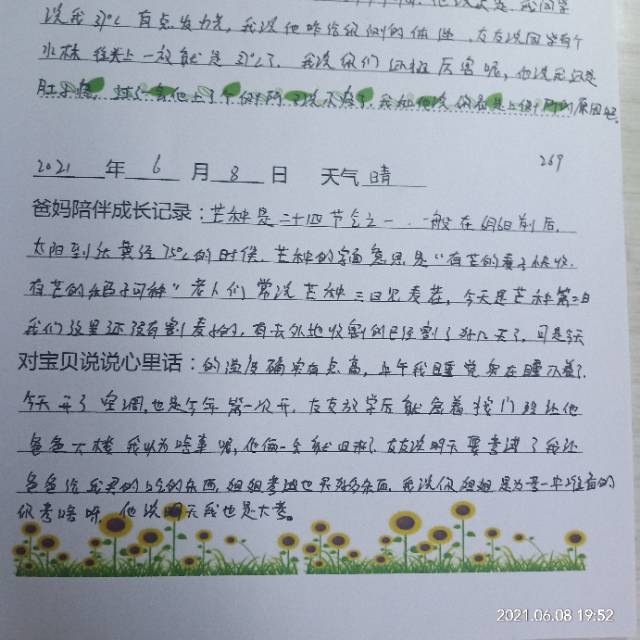 说我37℃有点发力老,我说他咋给你们的体温,友友说回家有个
水林往头上一放就是37℃了,我说你们还挺厉害呢,他说
肚子疼,过了一会他上了个厕所又说不疼了,我和他说你看是上厕所的原因吧。
269
2021年6月8日 天气晴
爸妈陪伴成长记录:芒种是二十四节气之一,一般在6月6日前后,
太阳到达黄经75℃的时候,芒种的字面意思是“有芒的麦子快收,
有芒的稻子可种”老人们常说芒种三日见麦茬,今天是芒种第三日
我们这里还没有割麦的,有去外地收割的已经割了好几天了,可是今天
对宝贝说说心里话:的温度确实有点高,上午我睡觉实在睡不着了
今天开了空调,也是今年第一次开,友友放学后就急着找门
爸爸大楼我以为啥事呢,他俩一会就回来了,友友说明天要考试了我让
爸爸给我买的吃的东西,姐姐考试也买好多东西,我说你姐姐是为
你考啥呀,他说明天我也是大考。
2021.06.08 19:52